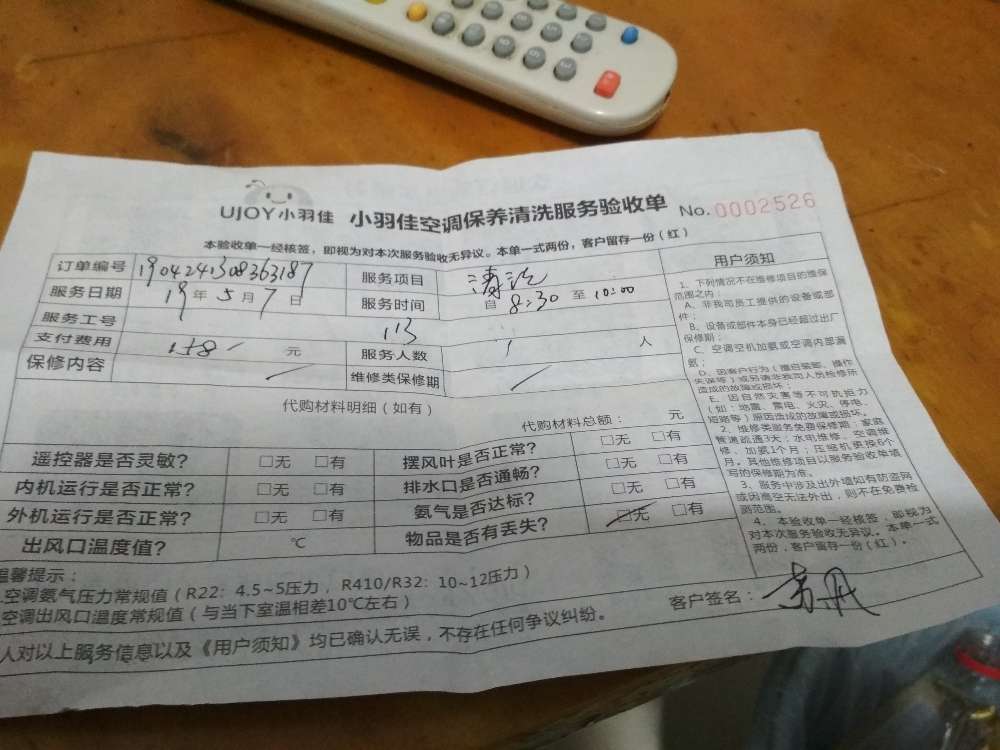 UJOY小羽佳 小羽佳空调保养清洗服务验收单 No.0002526
本验收单一经核签，即视为对本次服务验收无异议。本单一式两份，客户留存一份（红）
订单编号 1904241308363187 服务项目 清洗
服务日期 19年5月7日 服务时间 自8:30至10:00
服务工号 113
支付费用 158 元 服务人数 1 人
保修内容 维修类保修期
代购材料明细（如有）
代购材料总额： 元
遥控器是否灵敏？ □无 □有 摆风叶是否正常？ □无 □有
内机运行是否正常？ □无 □有 排水口是否通畅？ □无 □有
外机运行是否正常？ □无 □有 氨气是否达标？ □无 □有
出风口温度值？ ℃ 物品是否有丢失？ □无 □有
用户须知
1、下列情况不在维修项目的维保
范围之内：
A、非我司员工提供的设备或部
件；
B、设备或部件本身已经超过出厂
保修期；
C、空调空机加氨或空调内部漏
氨；
D、因客户行为（擅自装卸、操作
失误等）或另请非我司人员检修所
造成的故障或损坏；
E、因自然灾害等不可抗拒力
（如：地震、雷电、火灾、停电、
短路等）原因造成的故障或损坏。
2、维修类服务免费保修期：家庭
管道疏通3天；水电维修、空调维
修、加氨1个月；压缩机更换6个
月。其他维修项目以服务验收单填
写的保修期为准。
3、服务中涉及出外墙如有防盗网
或因高空无法外出，则不在免费检
测范围。
4、本验收单一经核签，即视为
对本次服务验收无异议。本单一式
两份，客户留存一份（红）。
温馨提示：
空调氨气压力常规值（R22：4.5~5压力，R410/R32：10~12压力）
空调出风口温度常规值（与当下室温相差10℃左右）
客户签名：
人对以上服务信息以及《用户须知》均已确认无误，不存在任何争议纠纷。